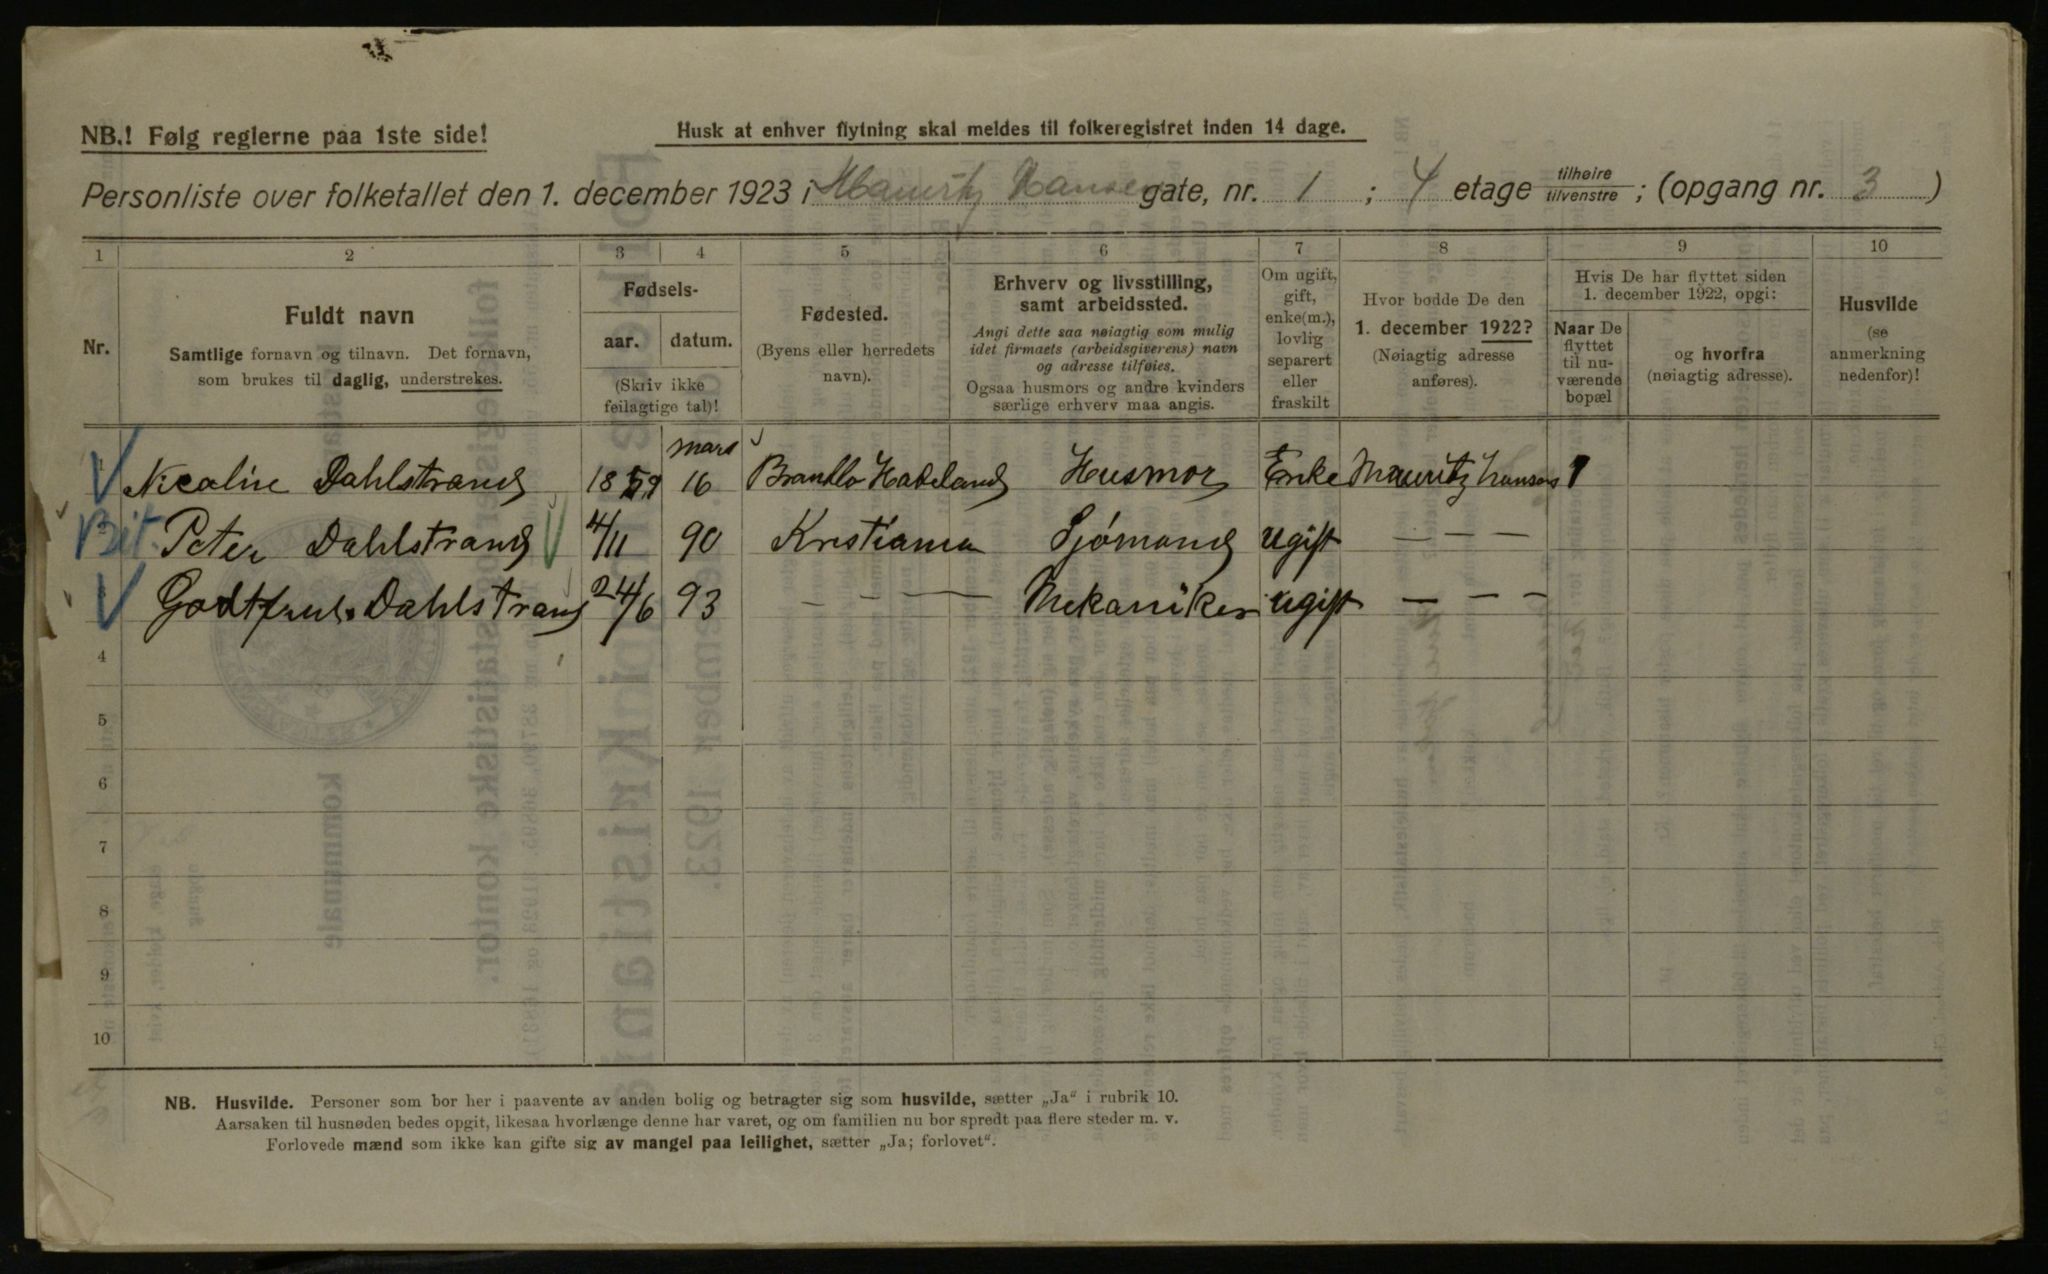 NB.! Følg reglerne paa 1ste side!
Husk at enhver flytning skal meldes til folkeregistret inden 14 dage.
Personliste over folketallet den 1. december 1923 i Mauritz Hansens gate, nr. 1 ; 4 etage tilhøire tilvenstre ; (opgang nr. 3 )
1 2 3 4 5 6 7 8 9 10
Nr.
Fuldt navn
Samtlige fornavn og tilnavn. Det fornavn,
som brukes til daglig, understrekes.
Fødsels-
aar. datum.
(Skriv ikke
feilagtige tal)!
Fødested.
(Byens eller herredets
navn).
Erhverv og livsstilling,
samt arbeidssted.
Angi dette saa nøiagtig som mulig
idet firmaets (arbeidsgiverens) navn
og adresse tilføies.
Ogsaa husmors og andre kvinders
særlige erhverv maa angis.
Om ugift,
gift,
enke(m.),
lovlig
separert
eller
fraskilt
Hvor bodde De den
1. december 1922?
(Nøiagtig adresse
anføres).
Hvis De har flyttet siden
1. december 1922, opgi:
Naar De
flyttet
til nu-
værende
bopæl
og hvorfra
(nøiagtig adresse).
Husvilde
(se
anmerkning
nedenfor)!
mars
Nicoline Dahlstrand 1859 16 Brandbo Hadeland Husmor Enke Mauritz Hansens 1
Bit. Peter Dahlstrand 4/11 90 Kristiania Sjømand ugift — — —
Dahlstrand 24/6 93 — — — — Mekaniker ugift — — —
4
5
6
7
8
9
10
NB. Husvilde. Personer som bor her i paavente av anden bolig og betragter sig som husvilde, sætter „Ja“ i rubrik 10.
Aarsaken til husnøden bedes opgit, likesaa hvorlænge denne har varet, og om familien nu bor spredt paa flere steder m. v.
Forlovede mænd som ikke kan gifte sig av mangel paa leilighet, sætter „Ja; forlovet“.